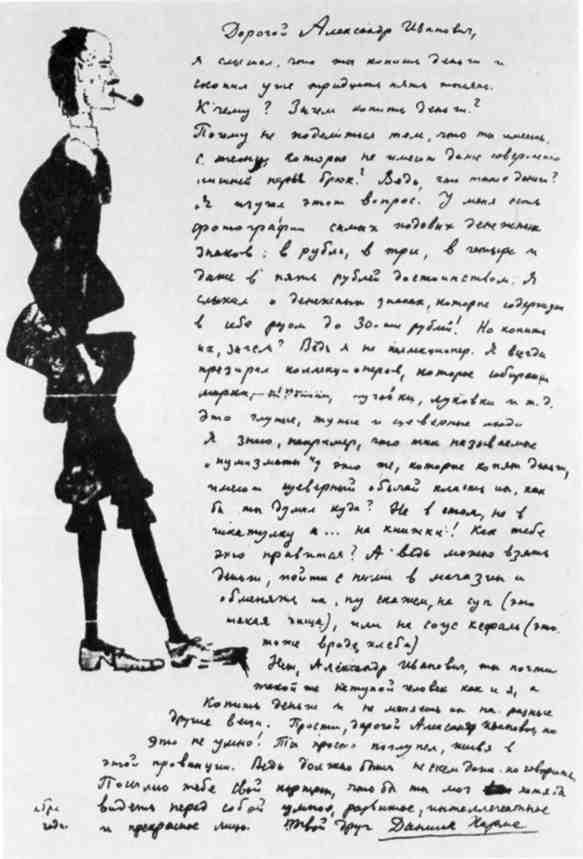 Дорогой Александр Иванович,
я слышал, что ты копишь деньги и
скопил уже тридцать пять тысяч.
К чему? Зачем копить деньги?
Почему не поделиться тем, что ты имеешь,
с теми, которые не имеют даже совершенно
лишней пары брюк? Ведь, что такое деньги?
Я изучал этот вопрос. У меня есть
фотографии самых ходовых денежных
знаков: в рубль, в три, в четыре и
даже в пять рублей достоинством. Я
слыхал о денежных знаках, которые содержат
в себе разом до 30-ти рублей! Но копить
их, зачем? Ведь я не коллекционер. Я всегда
презирал коллекционеров, которые собирают
марки, пуговки, луковки и т.д.
Это глупые, тупые и суеверные люди
Я знаю, например, что так называемые
"нумизматы", это те, которые копят деньги,
имеют суеверный обычай класть их, как
бы ты думал куда? Не в стол, не в
шкатулку а... на книжки! Как тебе
это нравится? А ведь можно взять
деньги, пойти с ними в магазин и
обменять их, ну скажем, на суп (это
такая пища), или на соус кефаль (это
тоже вроде хлеба)
Нет, Александр Иванович, ты почти
такой же нетупой человек как и я, а
копишь деньги и не меняешь их на разные
другие вещи. Прости, дорогой Александр Иванович, но
это не умно! Ты просто поглупел, живя в
этой провинции. Ведь должно быть не с кем даже поговорить.
Посылаю тебе свой портрет, чтобы ты мог хотя бы
видеть перед собой умное, развитое, интеллигентное
и прекрасное лицо. Твой друг Даниил Хармс